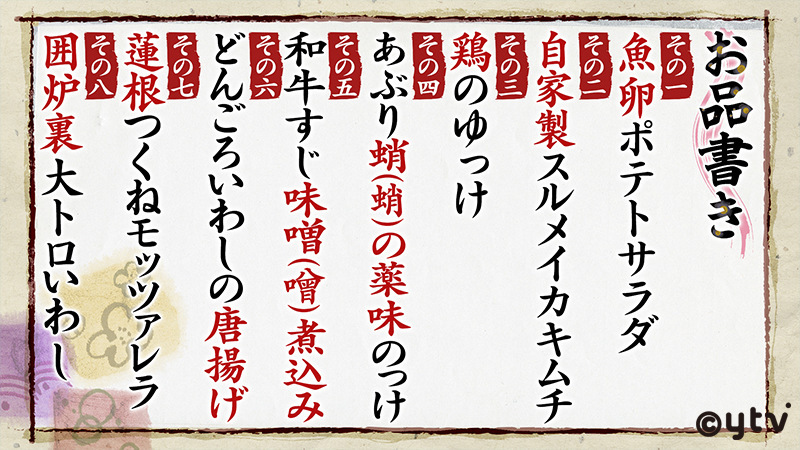 お品書き
その一
魚卵ポテトサラダ
その二
自家製スルメイカキムチ
その三
鶏のゆっけ
その四
あぶり蛸(蛸)の薬味のっけ
その五
和牛すじ味噌(噌)煮込み
その六
どんごろいわしの唐揚げ
その七
蓮根つくねモッツァレラ
その八
囲炉裏大トロいわし
©ytv